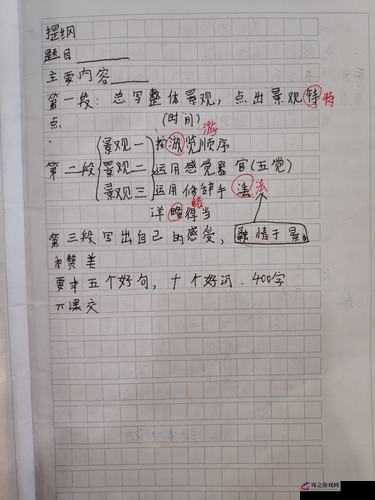 提纲
题目
主要内容
第一段：总写整体景观，点出景观特 特
点 (时间) 游
景观一 按游览顺序
第二段 景观二 运用感觉器官(五觉)
景观三 运用修辞手法 法
详略得当 略
第三段写出自己的感受，融情于景
和赞美
要求五个好句，十个好词．400字
六课交